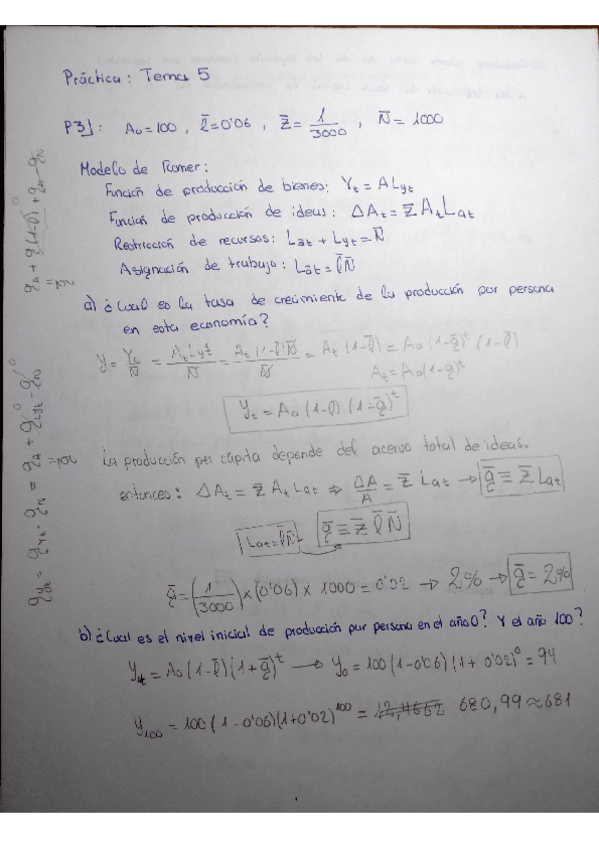 Práctica: Tema 5
P3]: A₀ = 100 , l̄ = 0'06 , z̄ = 1/3000 , N̄ = 1000
Modelo de Romer:
Función de producción de bienes: Yt = A Lyt
Función de producción de ideas: ΔAt = z̄ At Lat
Restricción de recursos: Lat + Lyt = N̄
Asignación de trabajo: Lat = l̄ N̄
a) ¿Cual es la tasa de crecimiento de la producción por persona
en esta economía?
y = Yt/N̄ = At Lyt/N̄ = At (1-l̄) N̄/N̄ = At (1-l̄) = A₀ (1-ḡ)^t (1-l̄)
At = A₀(1-ḡ)^t
yt = A₀ (1-l̄) (1-ḡ)^t
La producción per cápita depende del acervo total de ideas.
entonces: ΔAt = z̄ At Lat ⇒ ΔA/A = z̄ Lat → ḡ ≡ z̄ Lat
Lat = l̄N̄ ḡ ≡ z̄ l̄ N̄
ḡ = (1/3000) × (0'06) × 1000 = 0'02 → 2% → ḡ = 2%
b) ¿Cual es el nivel inicial de producción por persona en el año 0? Y el año 100?
yt = A₀ (1-l̄) (1+ḡ)^t → y₀ = 100 (1-0'06) (1+0'02)⁰ = 94
y₁₀₀ = 100 (1-0'06)(1+0'02)^100 = 680,99 ≈ 681